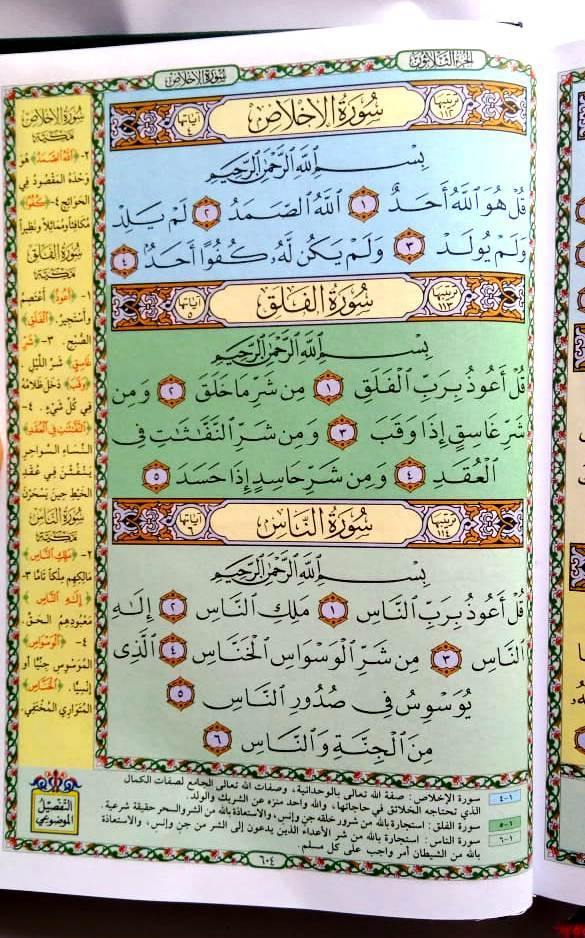 الجزء الثلاثون
سورة الإخلاص
ترتيبها ١١٢
سُورَةُ الإِخْلَاصِ
آياتها ٤
بِسْمِ اللَّهِ الرَّحْمَٰنِ الرَّحِيمِ
قُلْ هُوَ ٱللَّهُ أَحَدٌ ١ ٱللَّهُ ٱلصَّمَدُ ٢ لَمْ يَلِدْ
وَلَمْ يُولَدْ ٣ وَلَمْ يَكُن لَّهُۥ كُفُوًا أَحَدٌۢ ٤
ترتيبها ١١٣
سُورَةُ الفَلَقِ
آياتها ٥
بِسْمِ اللَّهِ الرَّحْمَٰنِ الرَّحِيمِ
قُلْ أَعُوذُ بِرَبِّ ٱلْفَلَقِ ١ مِن شَرِّ مَا خَلَقَ ٢ وَمِن
شَرِّ غَاسِقٍ إِذَا وَقَبَ ٣ وَمِن شَرِّ ٱلنَّفَّٰثَٰتِ فِى
ٱلْعُقَدِ ٤ وَمِن شَرِّ حَاسِدٍ إِذَا حَسَدَ ٥
ترتيبها ١١٤
سُورَةُ النَّاسِ
آياتها ٦
بِسْمِ اللَّهِ الرَّحْمَٰنِ الرَّحِيمِ
قُلْ أَعُوذُ بِرَبِّ ٱلنَّاسِ ١ مَلِكِ ٱلنَّاسِ ٢ إِلَٰهِ
ٱلنَّاسِ ٣ مِن شَرِّ ٱلْوَسْوَاسِ ٱلْخَنَّاسِ ٤ ٱلَّذِى
يُوَسْوِسُ فِى صُدُورِ ٱلنَّاسِ ٥
مِنَ ٱلْجِنَّةِ وَٱلنَّاسِ ٦
سُورَةُ الإِخْلَاصِ
مَكِّيَّة
٢- ﴿اللَّهُ الصَّمَدُ﴾ هُوَ
وَحْدَهُ المَقْصُودُ فِي
الحَوَائِجِ ٤- ﴿كُفُوًا﴾
مُكَافِئاً وَمُمَاثِلاً وَنَظِيراً
سُورَةُ الفَلَقِ
مَكِّيَّة
١- ﴿أَعُوذُ﴾ أَعْتَصِمُ
وَأَسْتَجِيرُ. ﴿الفَلَقِ﴾
الصُّبْحِ. ٣- ﴿شَرِّ
غَاسِقٍ﴾ شَرِّ اللَّيْلِ
﴿وَقَبَ﴾ دَخَلَ ظَلَامُهُ
فِي كُلِّ شَيْءٍ. ٤-
﴿النَّفَّاثَاتِ فِي العُقَدِ﴾
النِّسَاءِ السَّوَاحِرِ
يَنْفُثْنَ فِي عُقَدِ
الخَيْطِ حِينَ يَسْحَرْنَ
سُورَةُ النَّاسِ
مَكِّيَّة
٢- ﴿مَلِكِ النَّاسِ﴾
مَالِكِهِم مِلْكاً تَامًّا ٣-
﴿إِلَهِ النَّاسِ﴾
مَعْبُودِهِمُ الحَقِّ.
٤- ﴿الوَسْوَاسِ﴾
المُوَسْوِسِ جِنِّيًّا أَو
إِنْسِيًّا. ﴿الخَنَّاسِ﴾
المُتَوَارِي المُخْتَفِي.
التفصيل
الموضوعي
١-٤ سورة الإخلاص: صفة الله تعالى بالوحدانية، وصفات الله تعالى الجامع لصفات الكمال
الذي تحتاجه الخلائق في حاجاتها، والله واحد منزه عن الشريك والولد.
١-٥ سورة الفلق: استجارة بالله من شرور خلقه جن وإنس، والاستعاذة بالله من الشرور والسحر حقيقة شرعية.
١-٦ سورة الناس: استجارة بالله من شر الأعداء الذين يدعون إلى الشر من جن وإنس، والاستعاذة
بالله من الشيطان أمر واجب على كل مسلم.
٦٠٤